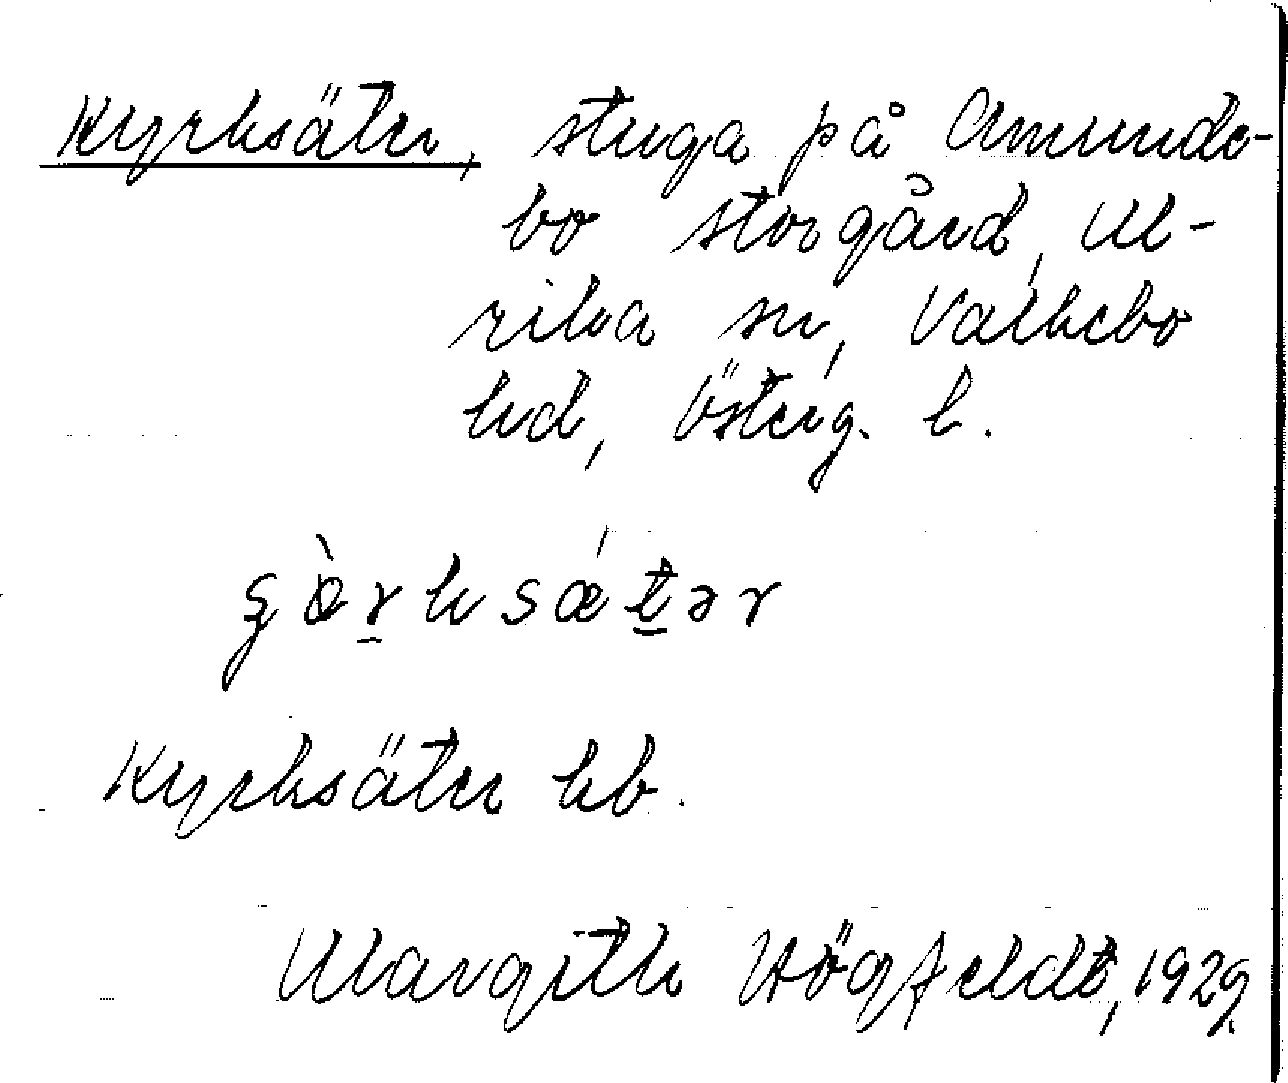 Kyrksäter, stuga på Amunde-
bo storgård, Ul-
rika sn, Valkebo
hd, Österg. l.
Kyrksäter kb.
Margith Högfeldt, 1929